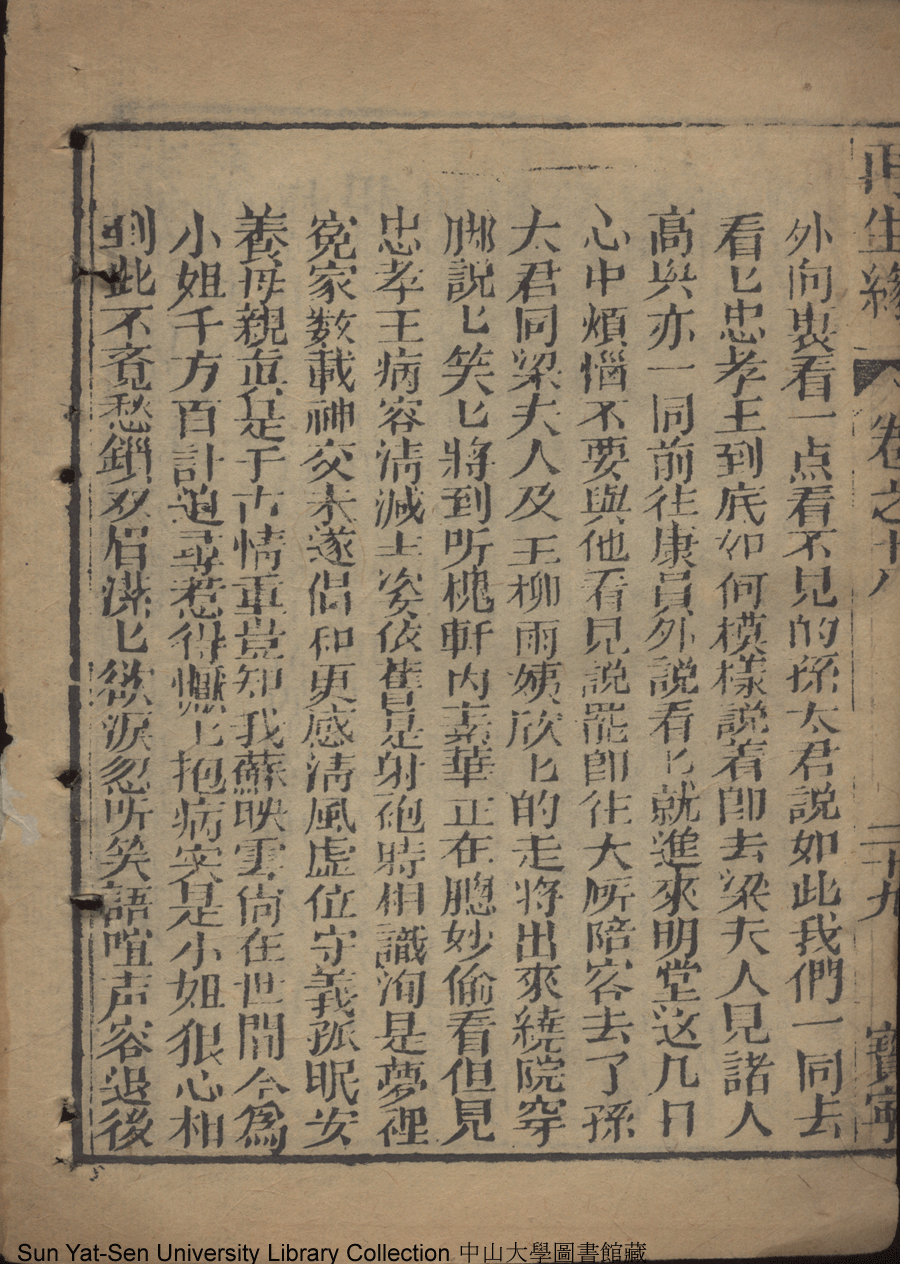 再生緣 卷之十八 二十九 寳寧
外向裏看一点看不見的孫太君説如此我們一同去
看匕忠孝王到底如何模様説着卽去梁夫人見諸人
高興亦一同前往康員外説看匕就進來明堂这几日
心中煩惱不要與他看見説罷卽往大所陪客去了孫
太君同梁夫人及王柳兩姨欣匕的走將出來繞院穿
廊説匕笑匕將到听槐軒内素華正在牕妙偷看但見
忠孝王病容清减丰姿依舊是射砲時相識洵是夢裡
寃家数載神交未遂侣和更感清風虚位守義孤眠安
養母親真是千古情重豈知我蘇映雪尙在世間今為
小姐千方百計追尋惹得懨匕抱病实是小姐狠心相
到此不竟愁鎖双眉漾匕欲淚忽听笑語喧声容退後
Sun Yat-Sen University Library Collection 中山大學圖書館藏